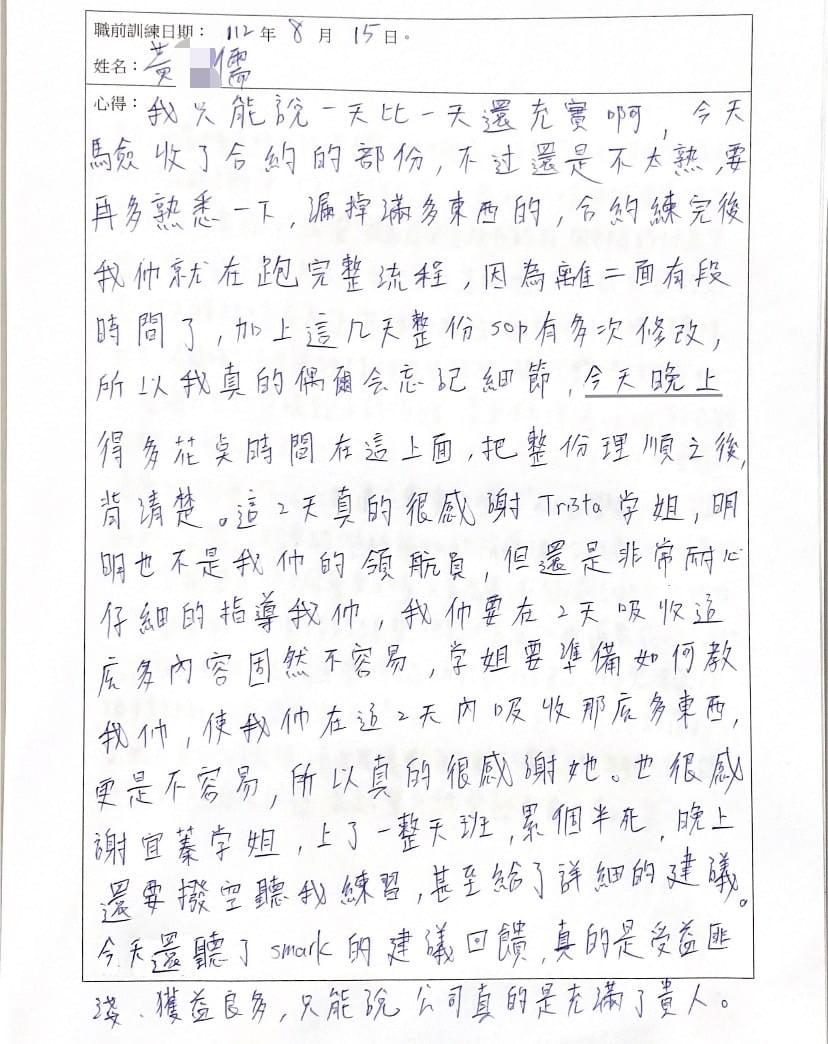 職前訓練日期： 112 年 8 月 15 日。
姓名：黃 儒
心得：我只能說一天比一天還充實啊，今天
驗收了合約的部份，不过還是不太熟，要
再多熟悉一下，漏掉滿多東西的，合約練完後
我们就在跑完整流程，因為離二面有段
時間了，加上這几天整份sop有多次修改，
所以我真的偶爾会忘記細節，今天晚上
得多花点時間在這上面，把整份理順之後，
背清楚。這2天真的很感謝Trista学姐，明
明也不是我们的領航員，但還是非常耐心
仔細的指導我们，我们要在2天吸收這
庅多內容固然不容易，学姐要準備如何教
我们，使我们在這2天內吸收那庅多東西，
更是不容易，所以真的很感謝她。也很感
謝宜蓁学姐，上了一整天班，累個半死，晚上
還要撥空聽我練習，甚至給了詳細的建議。
今天還聽了smark的建議回饋，真的是受益匪
淺、獲益良多，只能說公司真的是充滿了貴人。